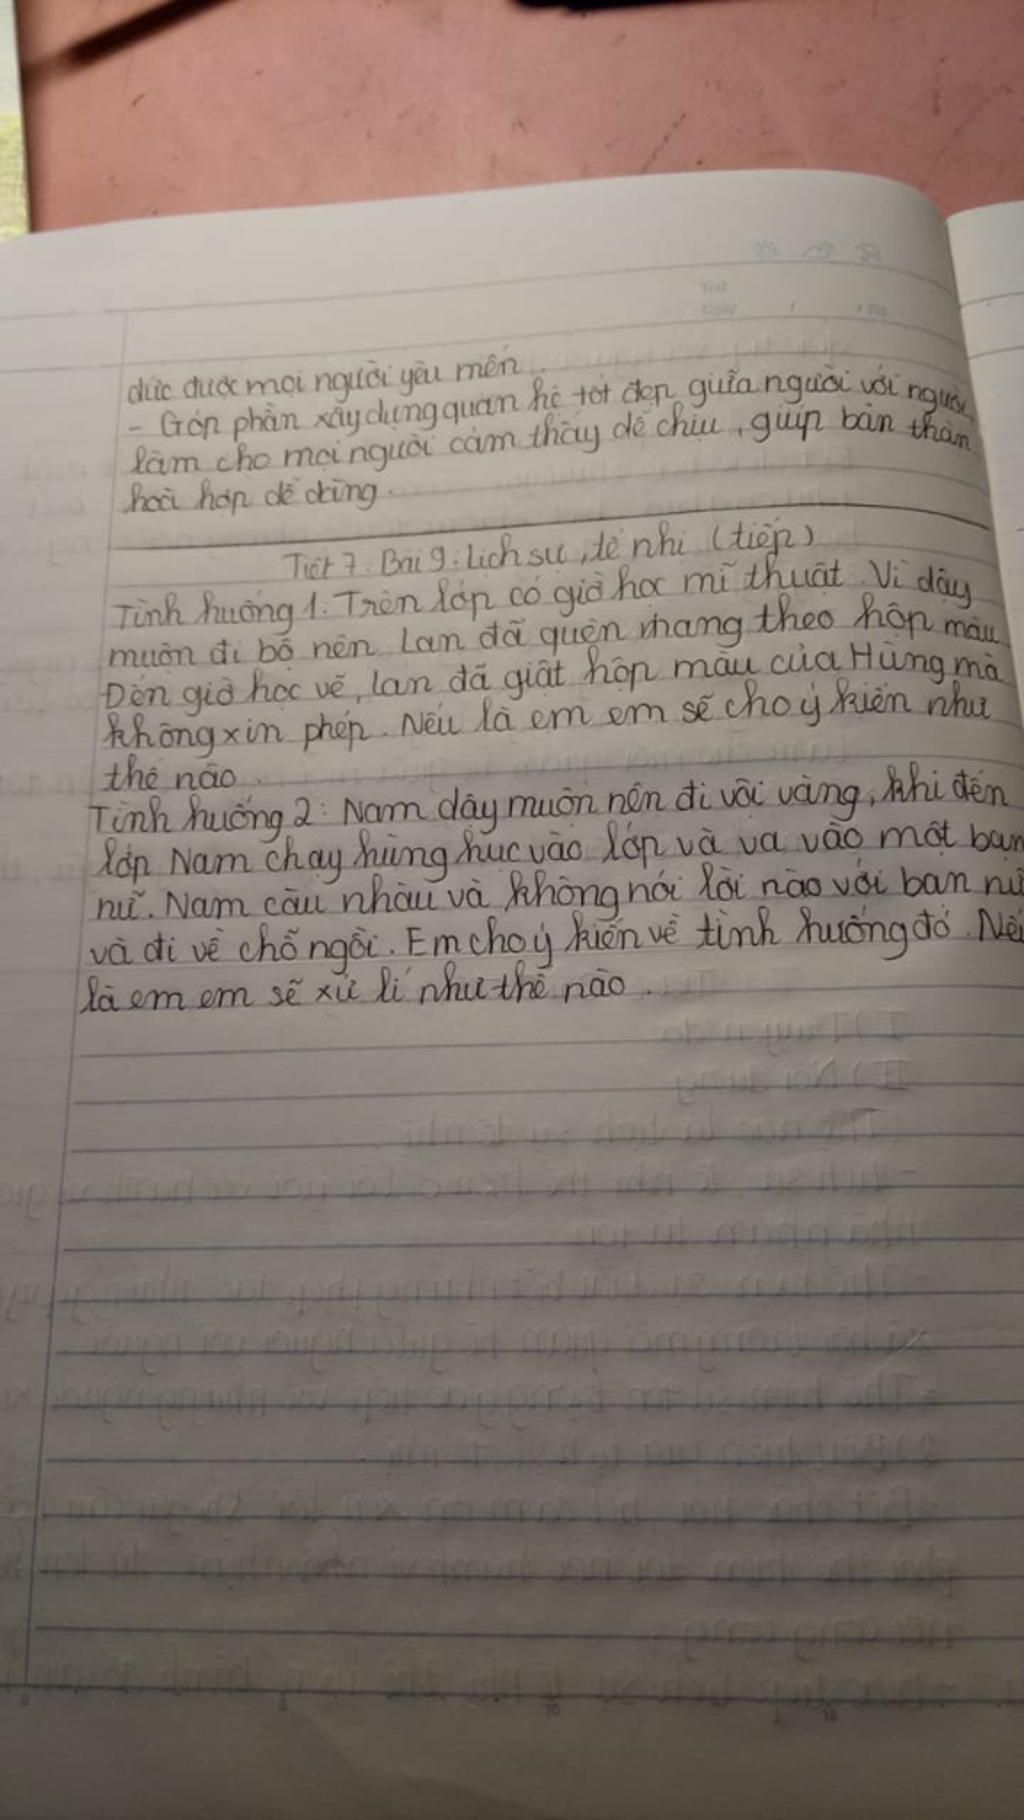 Thứ
Ngày
đức được mọi người yêu mến.
- Góp phần xây dựng quan hệ tốt đẹp giữa người với người,
làm cho mọi người cảm thấy dễ chịu, giúp bản thân
hoà hợp dễ dàng.
Tiết 7: Bài 9: Lịch sự, tế nhị (tiếp)
Tình huống 1: Trên lớp có giờ học mĩ thuật. Vì dậy
muộn đi bộ nên Lan đã quên mang theo hộp màu
Đến giờ học vẽ, Lan đã giật hộp màu của Hùng mà
không xin phép. Nếu là em em sẽ cho ý kiến như
thế nào.
Tình huống 2: Nam dậy muộn nên đi vội vàng, khi đến
lớp Nam chạy hùng hục vào lớp và va vào một bạn
nữ. Nam càu nhàu và không nói lời nào với bạn nữ
và đi về chỗ ngồi. Em cho ý kiến về tình huống đó. Nếu
là em em sẽ xử lí như thế nào.